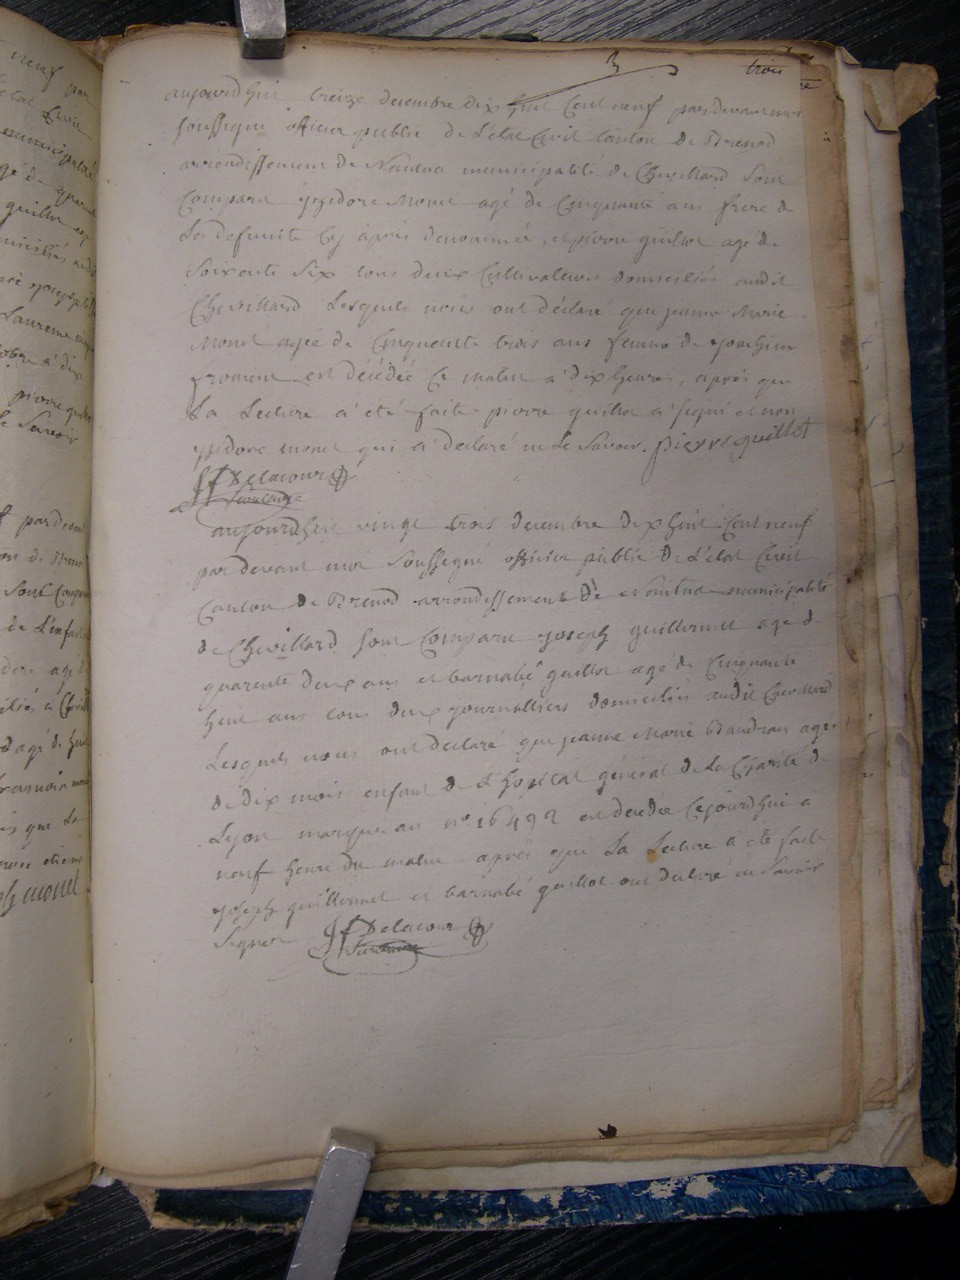 3
trois
aujourdhui treize decembre dix huit Cent neuf pardevant moi
soussigné officier public de L'etat Civil Canton de Brenod
arrondissement de Nantua municipalité de Chevillard Sont
Comparu ysidore Monet agé de Cinquante ans frere de
La defunte Cy après denommée, et pierre guillot agé de
Soixente Six tous deux Cultivateurs domiciliés audit
Chevillard Lesquels nous ont déclaré que jeanne Marie
Monet agée de Cinquente trois ans femme de joachim
froment est décédée Ce matin a dix heures, après que
La Lecture a été faite pierre guillot a signé et non
ysidore monet qui a declaré ne Le Savoir. pierre guillot
Delacour
aujourdhui vingt trois decembre dix huit Cent neuf
par devant moi Soussigné officier public de L'état Civil
Canton de Brenod arrondissement de Nantua municipalité
de Chevillard Sont Comparu joseph guillermet agé de
quarente deux ans et barnabé guillot agé de Cinquante
huit ans tous deux journalliers domiciliés audit Chevillard
Lesquels nous ont declaré que jeanne Marie Baudran agee
de dix mois enfant de L'hopital général de La Charité de
Lyon marque au n° 16492 est decédée Cejourdhui a
neuf heure du matin après que La Lecture a été faite
joseph guillermet et barnabé guillot ont declaré ne Savoir
Signer Delacour
neuf par
etat Civil
municipalité
gé de quarante
guillot
Laurence
pierre
Le Savoir
pardevant
de Brenod
Sont Comparu
de L'enfant
agé de
a Chevillard
agé de huit
que La
monet